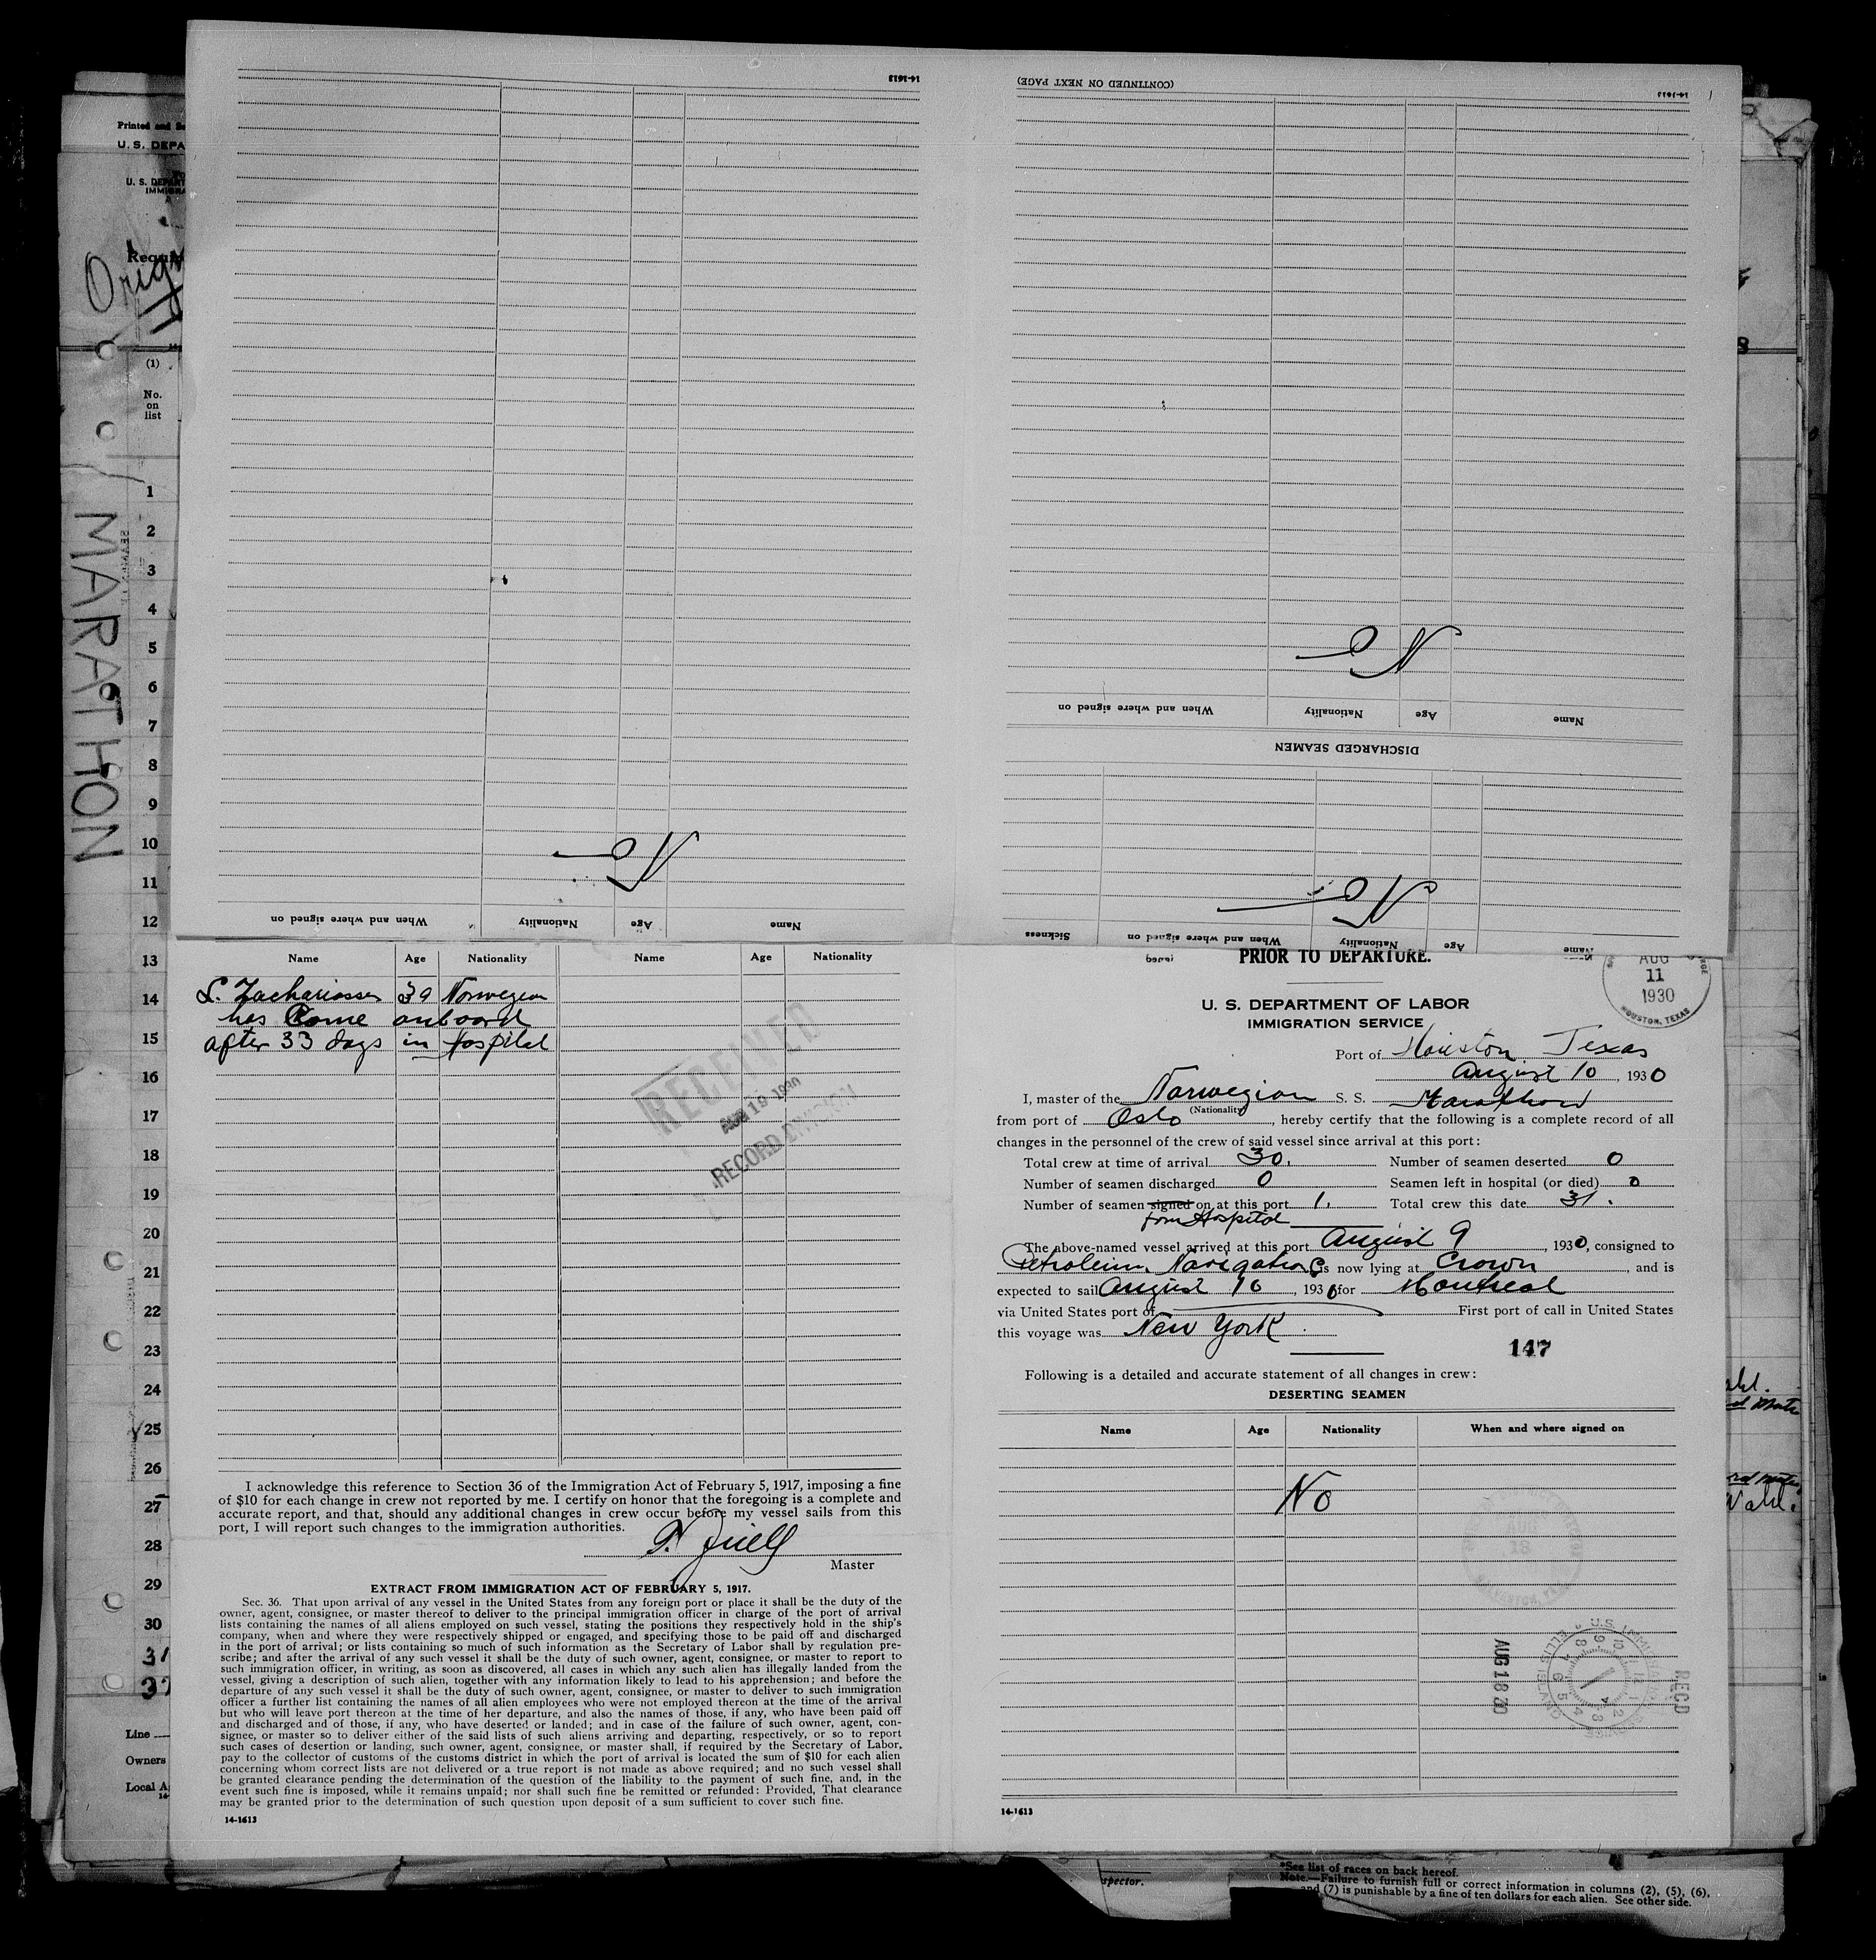 14-1613
(CONTINUED ON NEXT PAGE)
14-1613
Printed and
U. S. DEPA
U. S. DEPART
IMMIGRA
Requi
Orig
(1)
No.
on
list
MARATHON
1
2
3
4
5
6
7
8
9
10
11
12
13
14
15
16
17
18
19
20
21
22
23
24
25
26
27
28
29
30
31
32
Line
Owners
Local A
No
When and where signed on Nationality Age Name
DISCHARGED SEAMEN
No
When and where signed on Nationality Age Name
No
Sickness When and where signed on Nationality Age Name
Name Age Nationality Name Age Nationality
S. Zachariassen 39 Norwegian
has Come onboard
after 33 days in Hospital
RECEIVED
AUG 19 1930
RECORD DIVISION
I acknowledge this reference to Section 36 of the Immigration Act of February 5, 1917, imposing a fine
of $10 for each change in crew not reported by me. I certify on honor that the foregoing is a complete and
accurate report, and that, should any additional changes in crew occur before my vessel sails from this
port, I will report such changes to the immigration authorities.
Master
EXTRACT FROM IMMIGRATION ACT OF FEBRUARY 5, 1917.
Sec. 36. That upon arrival of any vessel in the United States from any foreign port or place it shall be the duty of the
owner, agent, consignee, or master thereof to deliver to the principal immigration officer in charge of the port of arrival
lists containing the names of all aliens employed on such vessel, stating the positions they respectively hold in the ship's
company, when and where they were respectively shipped or engaged, and specifying those to be paid off and discharged
in the port of arrival; or lists containing so much of such information as the Secretary of Labor shall by regulation pre-
scribe; and after the arrival of any such vessel it shall be the duty of such owner, agent, consignee, or master to report to
such immigration officer, in writing, as soon as discovered, all cases in which any such alien has illegally landed from the
vessel, giving a description of such alien, together with any information likely to lead to his apprehension; and before the
departure of any such vessel it shall be the duty of such owner, agent, consignee, or master to deliver to such immigration
officer a further list containing the names of all alien employees who were not employed thereon at the time of the arrival
but who will leave port thereon at the time of her departure, and also the names of those, if any, who have been paid off
and discharged and of those, if any, who have deserted or landed; and in case of the failure of such owner, agent, con-
signee, or master so to deliver either of the said lists of such aliens arriving and departing, respectively, or so to report
such cases of desertion or landing, such owner, agent, consignee, or master shall, if required by the Secretary of Labor,
pay to the collector of customs of the customs district in which the port of arrival is located the sum of $10 for each alien
concerning whom correct lists are not delivered or a true report is not made as above required; and no such vessel shall
be granted clearance pending the determination of the question of the liability to the payment of such fine, and, in the
event such fine is imposed, while it remains unpaid; nor shall such fine be remitted or refunded: Provided, That clearance
may be granted prior to the determination of such question upon deposit of a sum sufficient to cover such fine.
14-1613
PRIOR TO DEPARTURE.
AUG
11
1930
HOUSTON, TEXAS
U. S. DEPARTMENT OF LABOR
IMMIGRATION SERVICE
Port of Houston, Texas
August 10, 1930
I, master of the Norwegian S. S. Marathon
(Nationality)
from port of Oslo, hereby certify that the following is a complete record of all
changes in the personnel of the crew of said vessel since arrival at this port:
Total crew at time of arrival 30. Number of seamen deserted 0
Number of seamen discharged 0 Seamen left in hospital (or died) 0
Number of seamen signed on at this port 1. Total crew this date 31.
from Hospital
The above-named vessel arrived at this port August 9, 1930, consigned to
Petroleum Navigation C is now lying at Crown, and is
expected to sail August 10, 1930 for Montreal
via United States port of First port of call in United States
this voyage was New York.
147
Following is a detailed and accurate statement of all changes in crew:
DESERTING SEAMEN
Name Age Nationality When and where signed on
No
AUG
18
U. S. IMMIGRATION SERVICE
ELLIS ISLAND
AUG 18 30
RECD
14-1613
spector.
*See list of races on back hereof.
Note.—Failure to furnish full or correct information in columns (2), (5), (6),
and (7) is punishable by a fine of ten dollars for each alien. See other side.